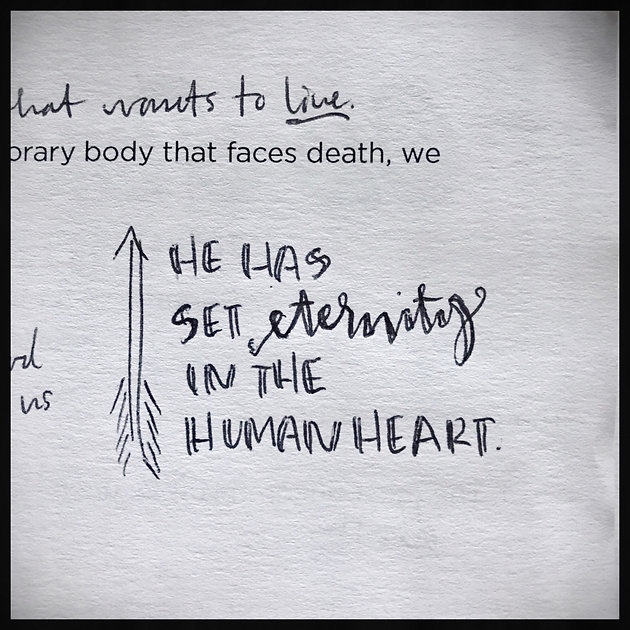 hat wants to live.
orary body that faces death, we
HE HAS
SET eternity
IN THE
HUMAN HEART.
rd
us